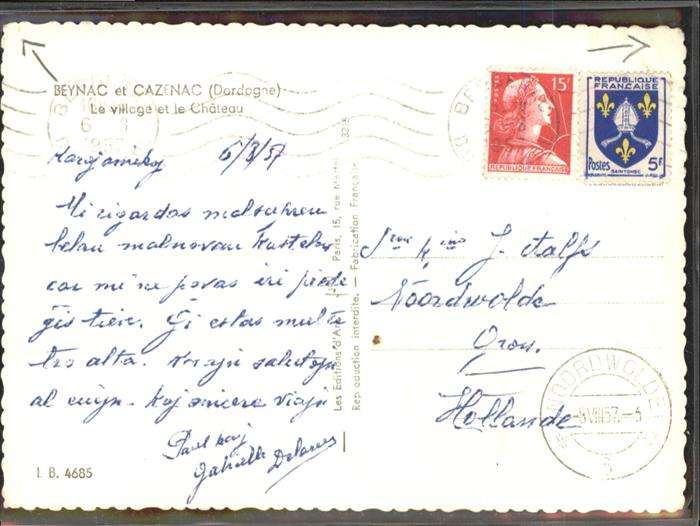 BEYNAC et CAZENAC (Dordogne)
Le village et le Château
Karaj amikoj 6/8/57
Mi rigardas malsupren
belan malnovan Kastelon
car mi ne povas iri piede
ĝis tien. Ĝi estas multe
tro alta. Korajn salutojn
al cujn. Kaj sincere viajn
Paul kaj
Gabrielle
I. B. 4685
Les Editions d'Art
Paris, 15, rue
Reproduction interdite. — Fabrication Française
15F
REPUBLIQUE FRANÇAISE
REPUBLIQUE FRANÇAISE
Postes 5F
SAINTONGE
J.
Noordwolde
Hollande
NOORDWOLDE
VIII 57